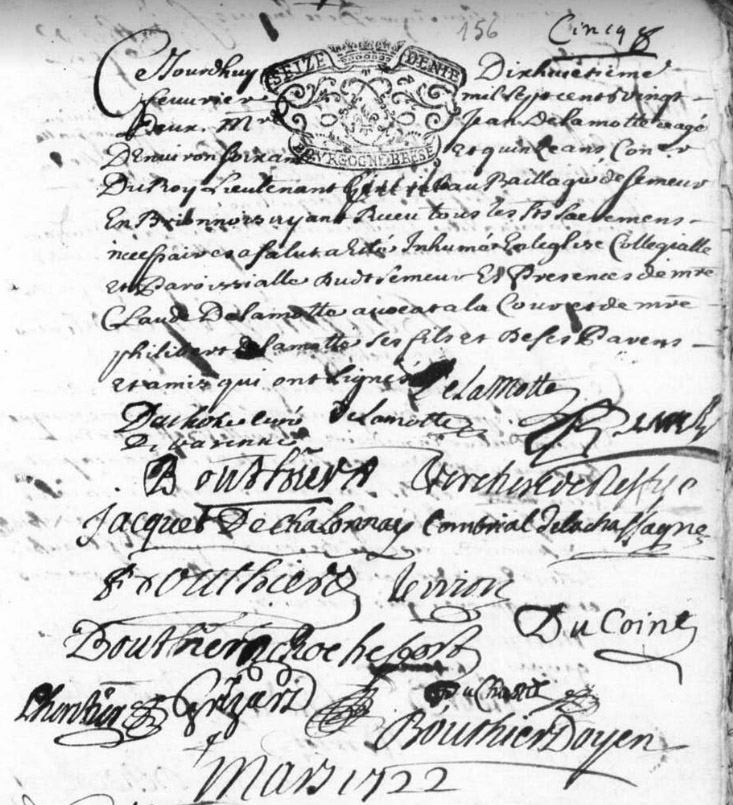 156
Cinq 8
SEIZE DENIE
BOVRGOGNE BRESSE
Cejourdhuy Dixhuictieme
feuurier mil sept cents vingt
deux Mre Jean Delamotte aagé
Denuiron soixante et quinze ans Con.er
Du Roy Lieutenant au Bailliage de semeur
En Brionnois ayant Receu tous les Sts sacremens
necessaires a salut a Este Inhumé En leglise Collegialle
et Paroissialle Dudt semeur Es Presences de mre
Claude Delamotte auocat a la Cour et de mre
philibert Delamotte ses fils et De ses Parens
et amis qui ont signés DeLaMotte
Duchone curé Delamotte
De varenne
Bouthier Verchere de Reffye
Jacquet De chalonnay Combrial delachassagne
Bouthier Rochefort
DuCoin
Bouthier Doyen
Mars 1722